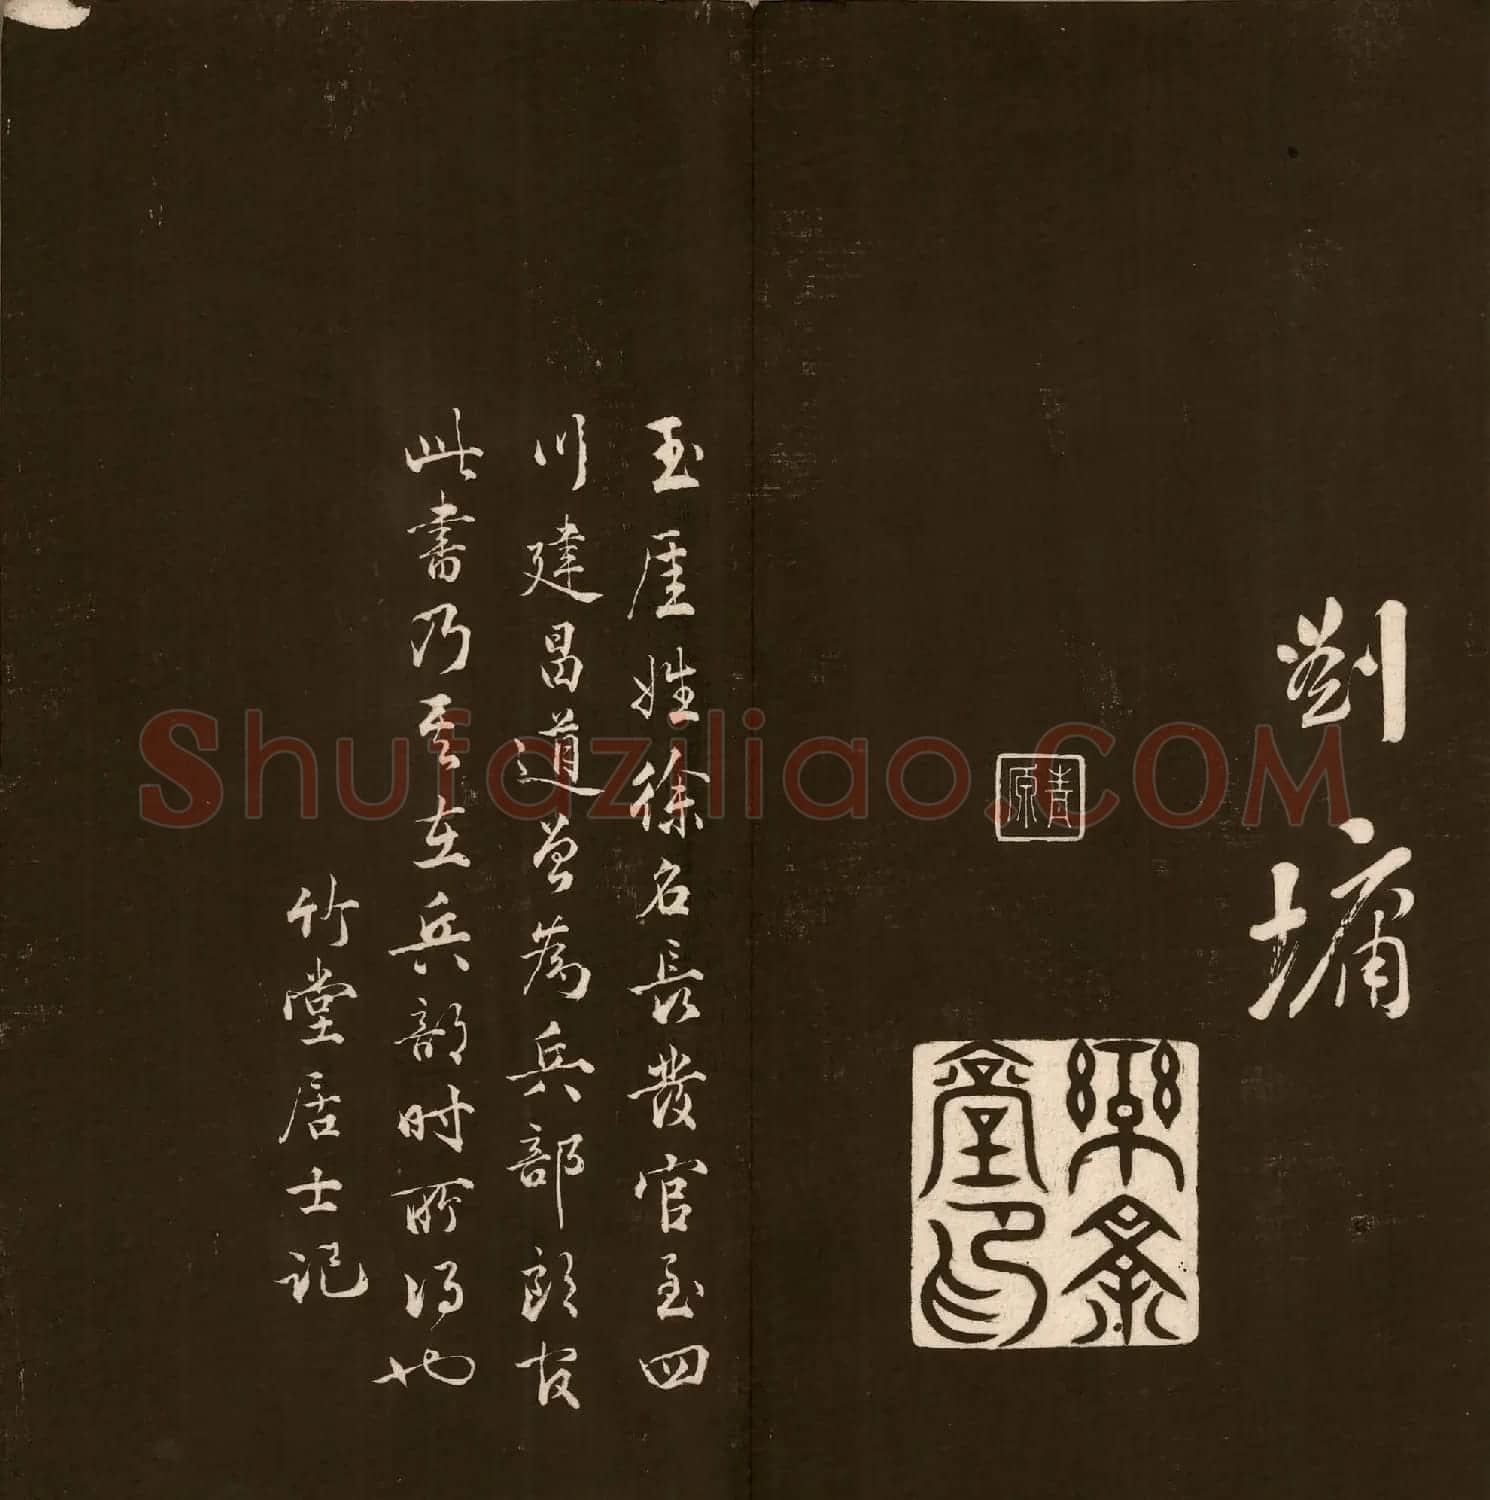 劉墉
青原
御
書
堂印
玉厓姓徐名長發官至四
川建昌道曾為兵部郎官
此書乃其在兵部時所得也
竹堂居士記
Shufaziliao.COM